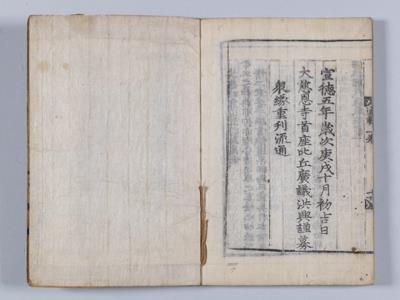 宣德五年歲次庚戌十月初吉日
大慈恩寺首座比丘廣議洪興謹募
衆緣重刊流通